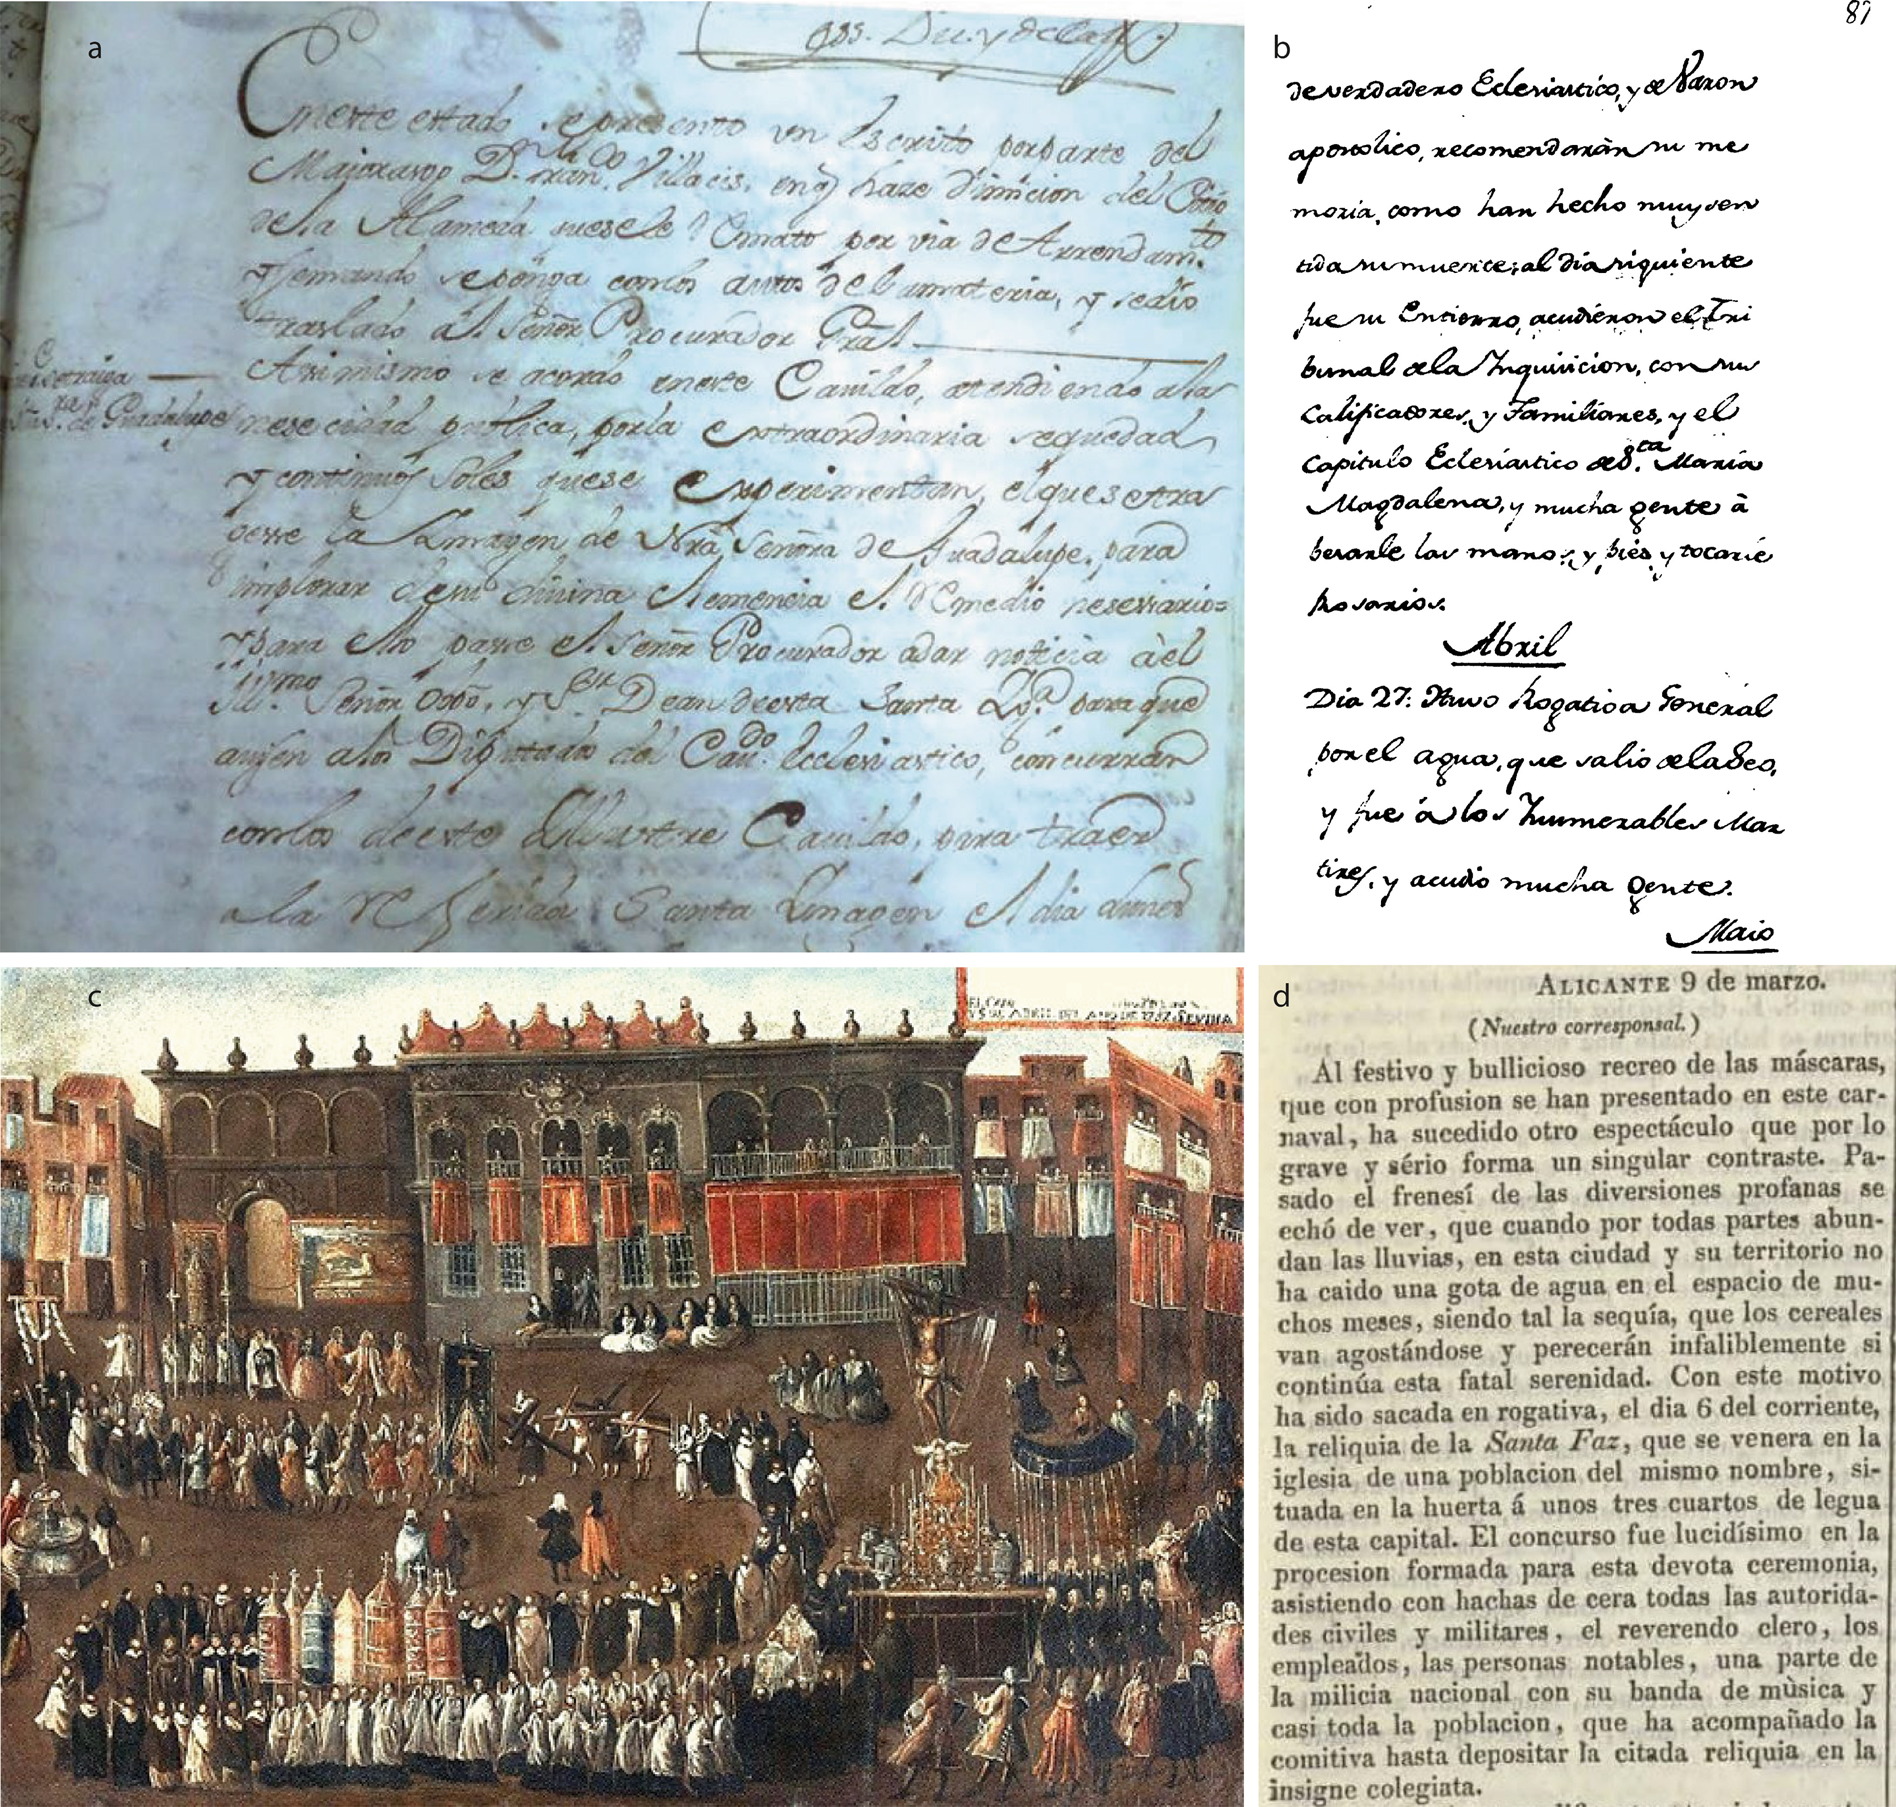 a
En este estado se presento un Escrito por parte del
Maiorasgo D.n Fran.co Villacis, en q haze dimicion del
de la Alameda
y se mando se ponga con los autos de la materia, y se dio
traslado al Señor Procurador Gral
Asimismo se acordo en este Cavildo, atendiendo a la
nesecidad publica, por la extraordinaria sequedad
y continuos soles que se experimentan, el que se tra
gesse la Ymagen de Nrã Señora de Guadalupe, para
implorar de su divina Clemencia el Remedio nesessario=
y para ello passe el Señor Procurador a dar noticia à el
Ill.mo Señor Obpõ, y S.or Dean de esta Santa Ygª para que
Diputado del Cau.do Ecclesiastico, concurran
con los de este Yllustre Cavildo, para traer
a la Referida Santa Ymagen el dia
S.ra de Guadalupe
b
87
de verdadero Eclesiastico, y de Varon
apostolico, recomendaràn su me
moria, como han hecho muy sen
tida su muerte; al dia siquiente
fue su Entierro, acudieron el Tri
bunal de la Inquisicion, con sus
Calificadores, y Familiares, y el
Capitulo Eclesiastico de S.ta Maria
Magdalena, y mucha gente à
besarle las manos, y pies y tocarle
Rosarios.
Abril
Dia 27: Huvo Rogativa General
por el agua, que salio de la Seo,
y fue á los Innumerables Mar
tires, y acudio mucha gente.
Maio
c
Y 5 DE ABRIL DEL AÑO DE 1757. SEVILLA
d
ALICANTE 9 de marzo.
(Nuestro corresponsal.)
Al festivo y bullicioso recreo de las máscaras,
que con profusion se han presentado en este car-
naval, ha sucedido otro espectáculo que por lo
grave y sério forma un singular contraste. Pa-
sado el frenesí de las diversiones profanas se
echó de ver, que cuando por todas partes abun-
dan las lluvias, en esta ciudad y su territorio no
ha caido una gota de agua en el espacio de mu-
chos meses, siendo tal la sequía, que los cereales
van agostándose y perecerán infaliblemente si
continúa esta fatal serenidad. Con este motivo
ha sido sacada en rogativa, el dia 6 del corriente,
la reliquia de la Santa Faz, que se venera en la
iglesia de una poblacion del mismo nombre, si-
tuada en la huerta á unos tres cuartos de legua
de esta capital. El concurso fue lucidísimo en la
procesion formada para esta devota ceremonia,
asistiendo con hachas de cera todas las autorida-
des civiles y militares, el reverendo clero, los
empleados, las personas notables, una parte de
la milicia nacional con su banda de mùsica y
casi toda la poblacion, que ha acompañado la
comitiva hasta depositar la citada reliquia en la
insigne colegiata.